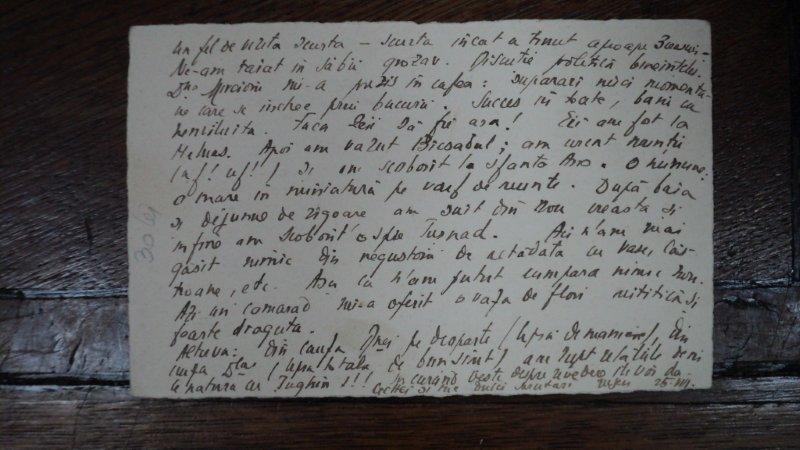 un fel de vizita scurta – scurta incat a tinut aproape 3 ceasuri.
Ne-am taiat in săbii grozav. Discutie politică bineinteles.
Dna Mircioiu mi-a prezis in cafea: suparari mici momenta-
ne care se incheie prin bucurii. Succes in toate, bani cu
nemiluita. Faca Zeii să fie asa! Eri am fot la
Helmas. Apoi am vazut Bicsadul; am urcat muntii
(uf! uf!) si am scoborit la sfanta Ana. O minune:
o mare in miniatură pe varf de munte. După baia
si dejunul de rigoare am suit din nou creasta si
in fine am scoborit spre Tusnad. Aci n'am mai
găsit nimic din negustorii de altădata cu vase, cas-
troane, etc. Asa ca n'am putut cumpara nimic nou.
Azi un camarad mi-a oferit o vaza de flori mititică si
foarte draguta.
Altceva: din cauza pe deoparte (lipsă de maniere), din
cauza Dlui (lipsa totala de bun simt) am rupt relatiile
in curând vesti despre
Cettei si tie dulci sarutari 25-VII.
30 lei